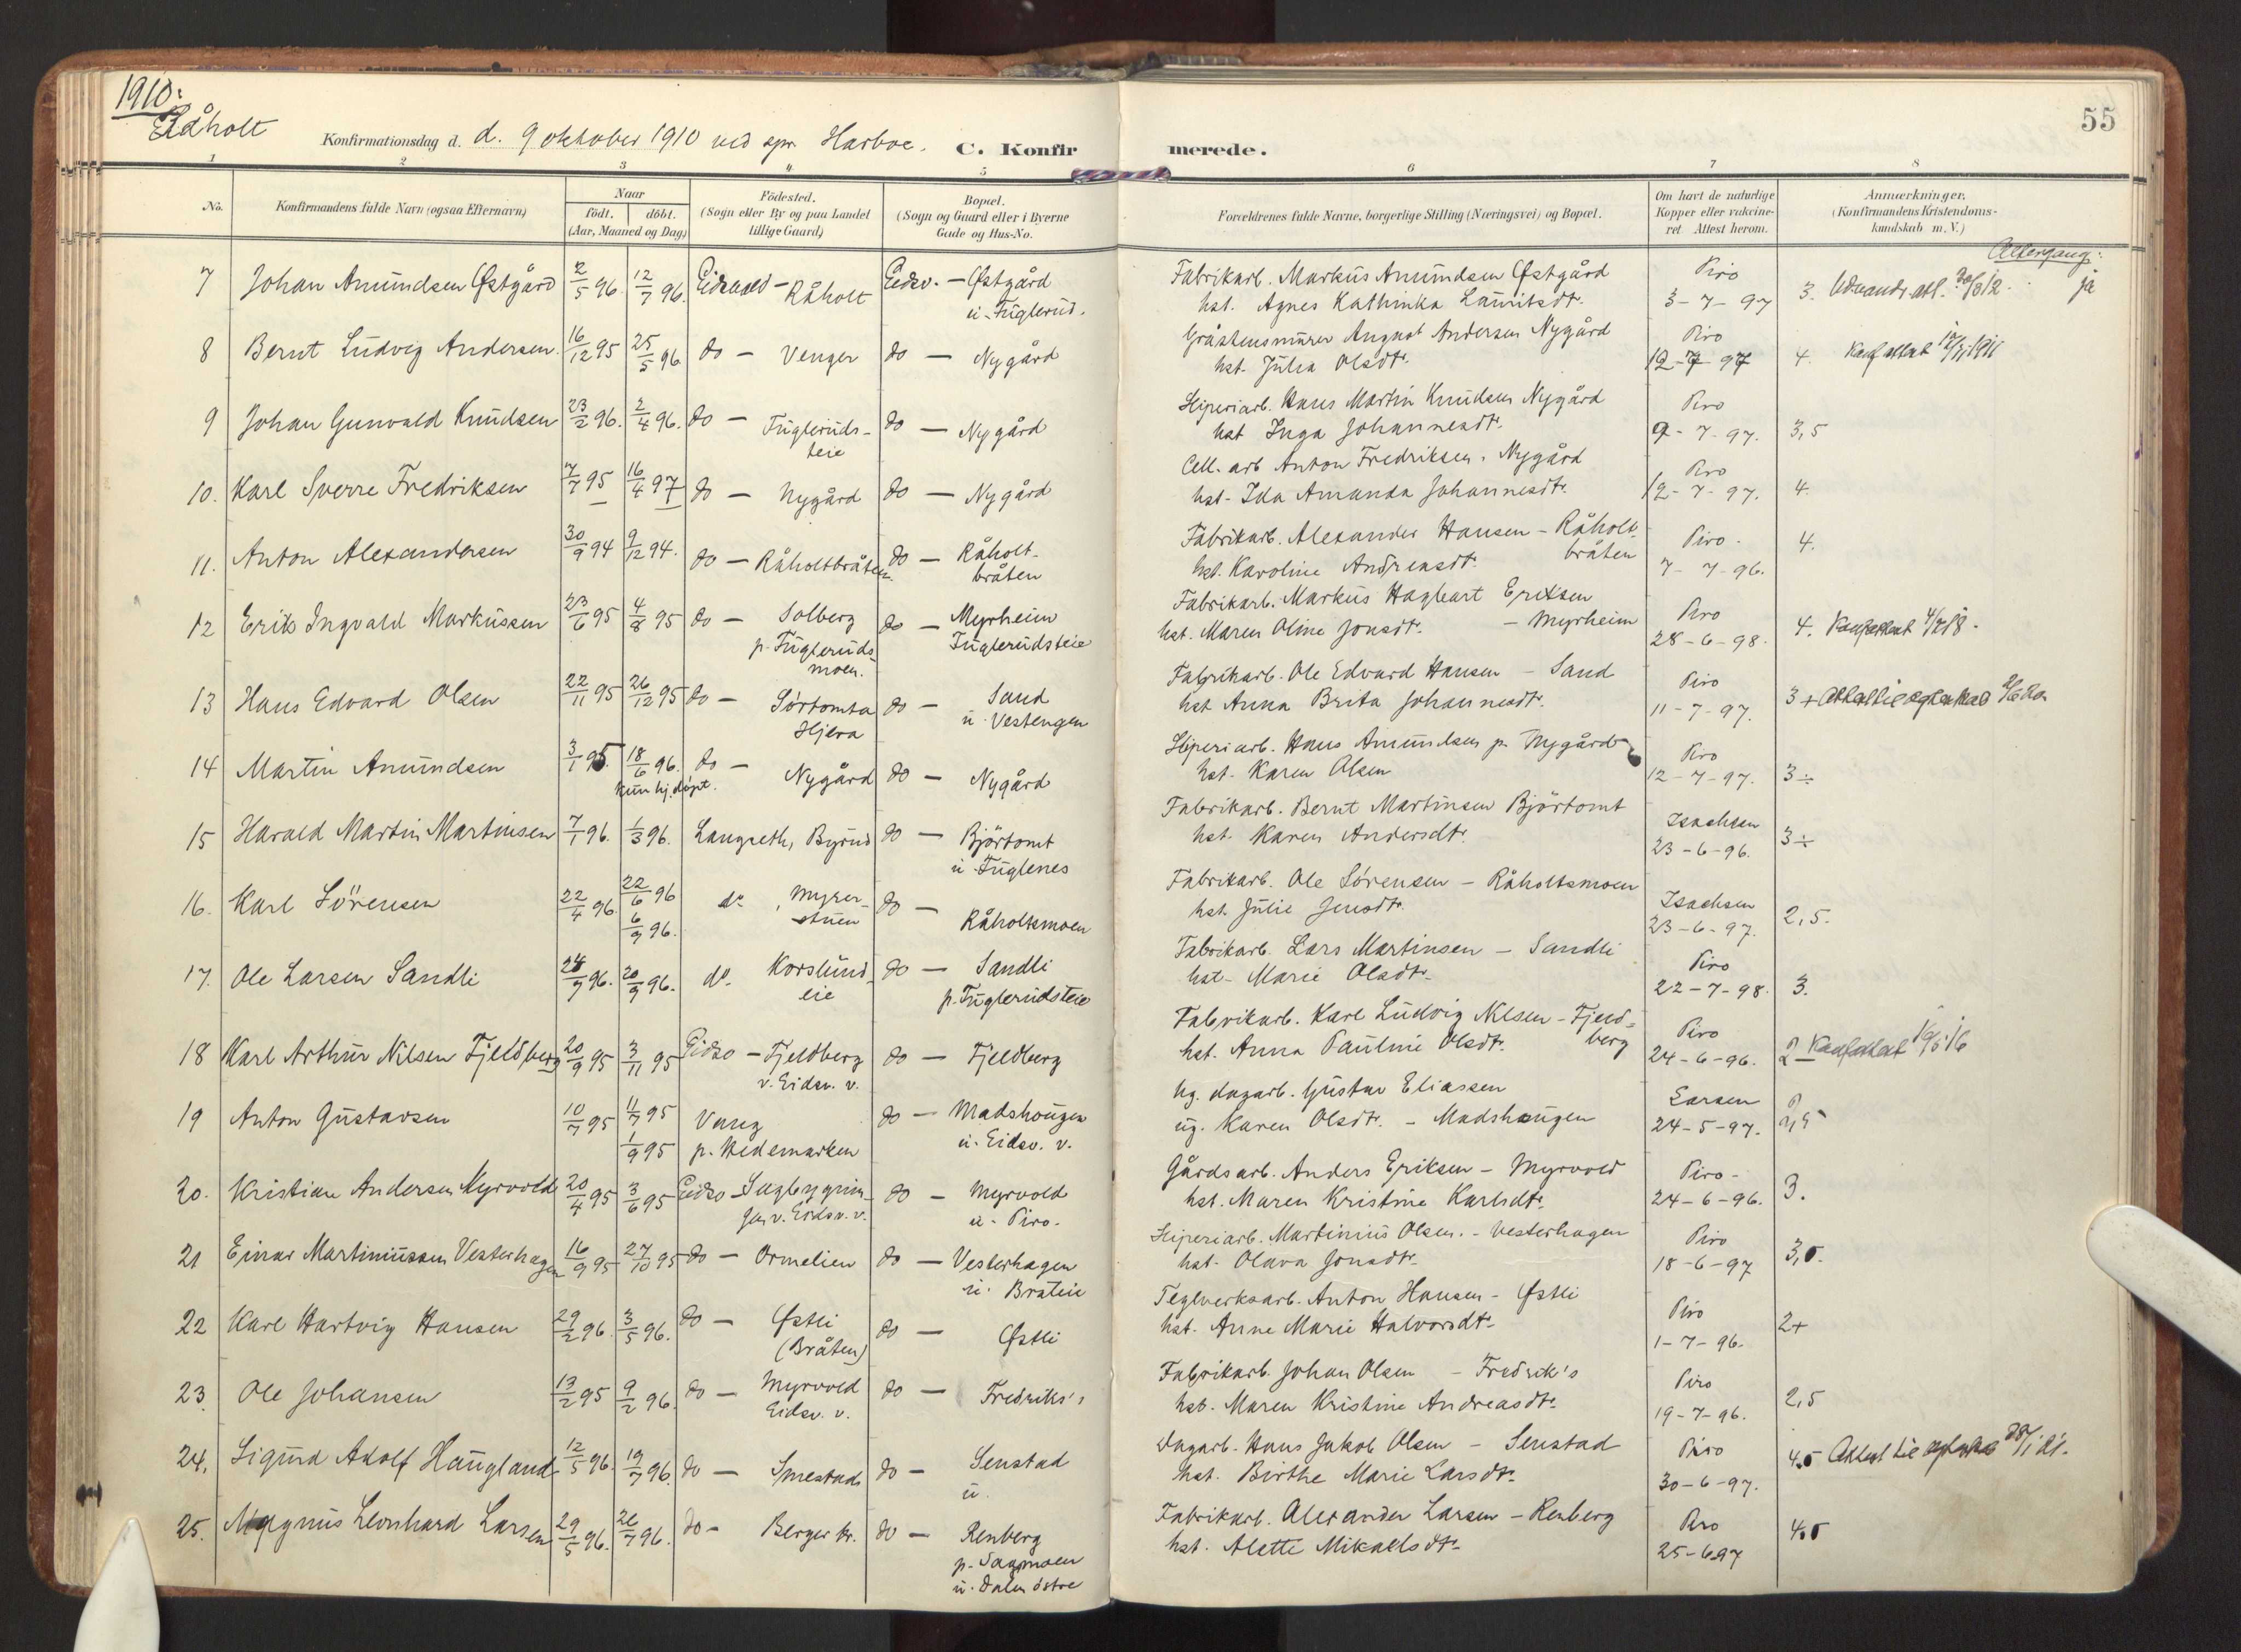 1910:
Råholt
55
Konfirmationsdag d. d. 9 oktober 1910 ved spr. Harboe. C. Konfirmerede.
1 2 3 4 5 6 7 8
No.
Konfirmandens fulde Navn (ogsaa Efternavn)
Naar
födt. döbt.
(Aar, Maaned og Dag)
Födested.
(Sogn eller By og paa Landet
tillige Gaard)
Bopæl.
(Sogn og Gaard eller i Byerne
Gade og Hus-No.
Forældrenes fulde Navne, borgerlige Stilling (Næringsvei) og Bopæl.
Om havt de naturlige
Kopper eller vakcine-
ret Attest herom.
Anmærkninger.
(Konfirmandens Kristendoms-
kundskab m. V.)
Altergang:
7 Johan Amundsen Østgård 2/5 96 12/7 96. Eidsvold - Råholt Eidsv. - Østgård
u. Fuglerud.
Fabrikarb. Markus Amundsen Østgård
hst. Agnes Kathinka Lauritsdtr.
Piro
3-7-97
3. Udvandr. att. ja
8 Bernt Ludvig Andersen. 16/12 95 25/5 96 do - Venger do - Nygård
Gråstensmurer August Andersen Nygård
hst. Julia Olsdtr.
Piro
12-7-97
4. Konf attest
9 Johan Gunvald Knudsen 23/2 96. 2/4 96. do - Fugleruds-
teie do - Nygård
Sliperiarb. Hans Martin Knudsen Nygård
hst Inga Johannesdtr.
Piro
9-7-97.
3,5
10. Karl Sverre Fredriksen 7/7 95 16/4 97 do - Nygård do - Nygård
Cell. arb Anton Fredriksen. Nygård
hst. Ida Amanda Johannesdtr.
Piro
12-7-97.
4.
11. Anton Alexandersen 30/9 94 9/12 94. do - Råholtbråten do - Råholt-
bråten
Fabrikarb. Alexander Hansen - Råholt-
bråten
hst. Karoline Andreasdtr.
Piro.
7-7-96.
4.
12 Erik Ingvald Markussen 23/6 95 4/8 95 do - Solberg
p. Fugleruds-
moen. do - Myrheim
Fuglerudsteie
Fabrikarb. Markus Hagbart Eriksen
hst. Maren Oline Jonsdtr. - Myrheim
Piro
28-6-98.
4. Konfattest
13 Hans Edvard Olsen 22/11 95 26/12 95 do - Sörtomta
Hjera do - Sand
u. Vestengen
Fabrikarb. Ole Edvard Hansen - Sand
hst Anna Brita Johannesdtr.
Piro
11-7-97.
3+
14 Martin Amundsen 3/1 95. 18/6 96. do - Nygård do - Nygård
kun hj. döpt.
Sliperiarb. Hans Amundsen p. Nygård
hst. Karen Olsen
Piro
12-7-97.
3÷
15 Harald Martin Martinsen 7/1 96. 1/3 96. Langseth, Byrud do - Björtomt
u. Fuglenes
Fabrikarb. Bernt Martinsen Björtomt
hst. Karen Andersdtr.
Isachsen
23-6-96.
3÷
16. Karl Sörensen 22/4 96. 22/6 96
6/9 96. do , Myrer-
stuen do - Råholtsmoen
Fabrikarb. Ole Sörensen - Råholtsmoen
hst. Julie Jensdtr.
Isachsen
23-6-97.
2,5.
17. Ole Larsen Sandli 24/7 96. 20/9 96. do. Korslund-
eie do - Sandli
p. Fuglerudsteie
Fabrikarb. Lars Martinsen - Sandli
hst. Marie Olsdtr.
Piro
22-7-98.
3.
18 Karl Arthur Nilsen Fjeldberg 20/9 95 3/11 95 Eidsv - Fjeldberg
v. Eidsv. v. do - Fjeldberg
Fabrikarb. Karl Ludvig Nilsen - Fjeld-
berg
hst. Anna Pauline Olsdtr.
Piro
24-6-96.
2 Konfattest
19 Anton Gustavsen 10/7 95 11/7 95
1/9 95 Vang
p. Hedemarken do - Madshougen
u. Eidsv. v.
Ug. dagarb. Gustav Eliassen
ug. Karen Olsdtr. - Madshaugen
Larsen
24-5-97.
2,5
20. Kristian Andersen Myrvold 20/4 95 3/6 95 Eidsv - Sagbygnin-
gen v. Eidsv. v. do - Myrvold
u. Piro.
Gårdsarb. Anders Eriksen - Myrvold
hst. Maren Kristine Karlsdtr.
Piro-
24-6-96.
3.
21 Einar Martiniussen Vesterhagen 16/9 95 27/10 95 do - Ormelien do - Vesterhagen
u. Bråteie
Sliperiarb. Martinius Olsen. - Vesterhagen
hst. Olava Jonsdtr.
Piro
18-6-97
3,5.
22 Karl Hartvig Hansen 29/2 96. 3/5 96. do - Østli
(Bråten) do - Østli
Teglverksarb. Anton Hansen - Østli
hst. Anne Marie Halvorsdtr.
Piro
1-7-96.
2+
23. Ole Johansen 13/2 95 9/2 96. do - Myrvold
Eidsv. v. do - Fredriks's
Fabrikarb. Johan Olsen - Fredrik's
hst. Maren Kristine Andreasdtr.
Piro
19-7-96.
2,5
24. Sigurd Adolf Haugland 12/5 96. 19/7 96. do - Smestad do - Senstad
u.
Dagarb. Hans Jakob Olsen - Senstad
hst. Birthe Marie Larsdtr.
Piro
30-6-97.
4.5
25. Magnus Leonhard Larsen 29/5 96. 26/7 96. do - Berger kr. do - Renberg
p. Sagmoen
u. Dalen östre
Fabrikarb. Alexander Larsen - Renberg
hst. Alette Mikaelsdtr.
Piro
25-6-97
4.5